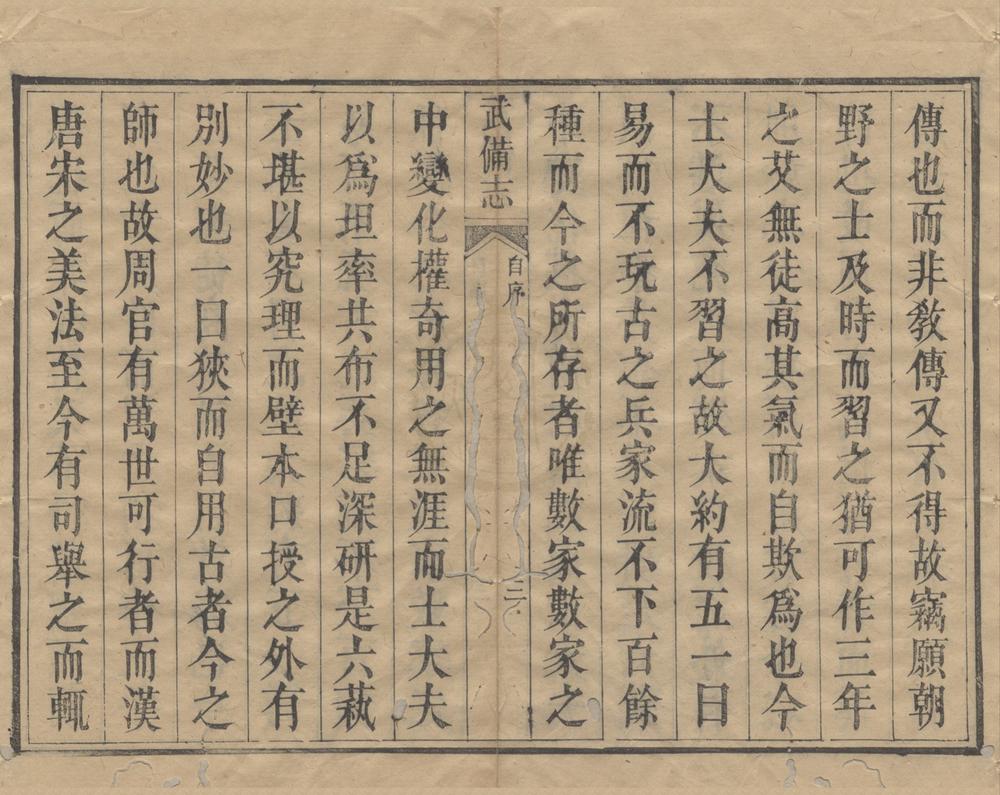 傳也而非敎傳又不得故竊願朝
野之士及時而習之猶可作三年
之艾無徒高其氣而自欺爲也今
士大夫不習之故大約有五一曰
易而不玩古之兵家流不下百餘
種而今之所存者唯數家數家之
武備志
自序
三
中變化權奇用之無涯而士大夫
以爲坦率共布不足深硏是六萟
不堪以究理而壁本口授之外有
別妙也一曰狹而自用古者今之
師也故周官有萬世可行者而漢
唐宋之美法至今有司舉之而輒